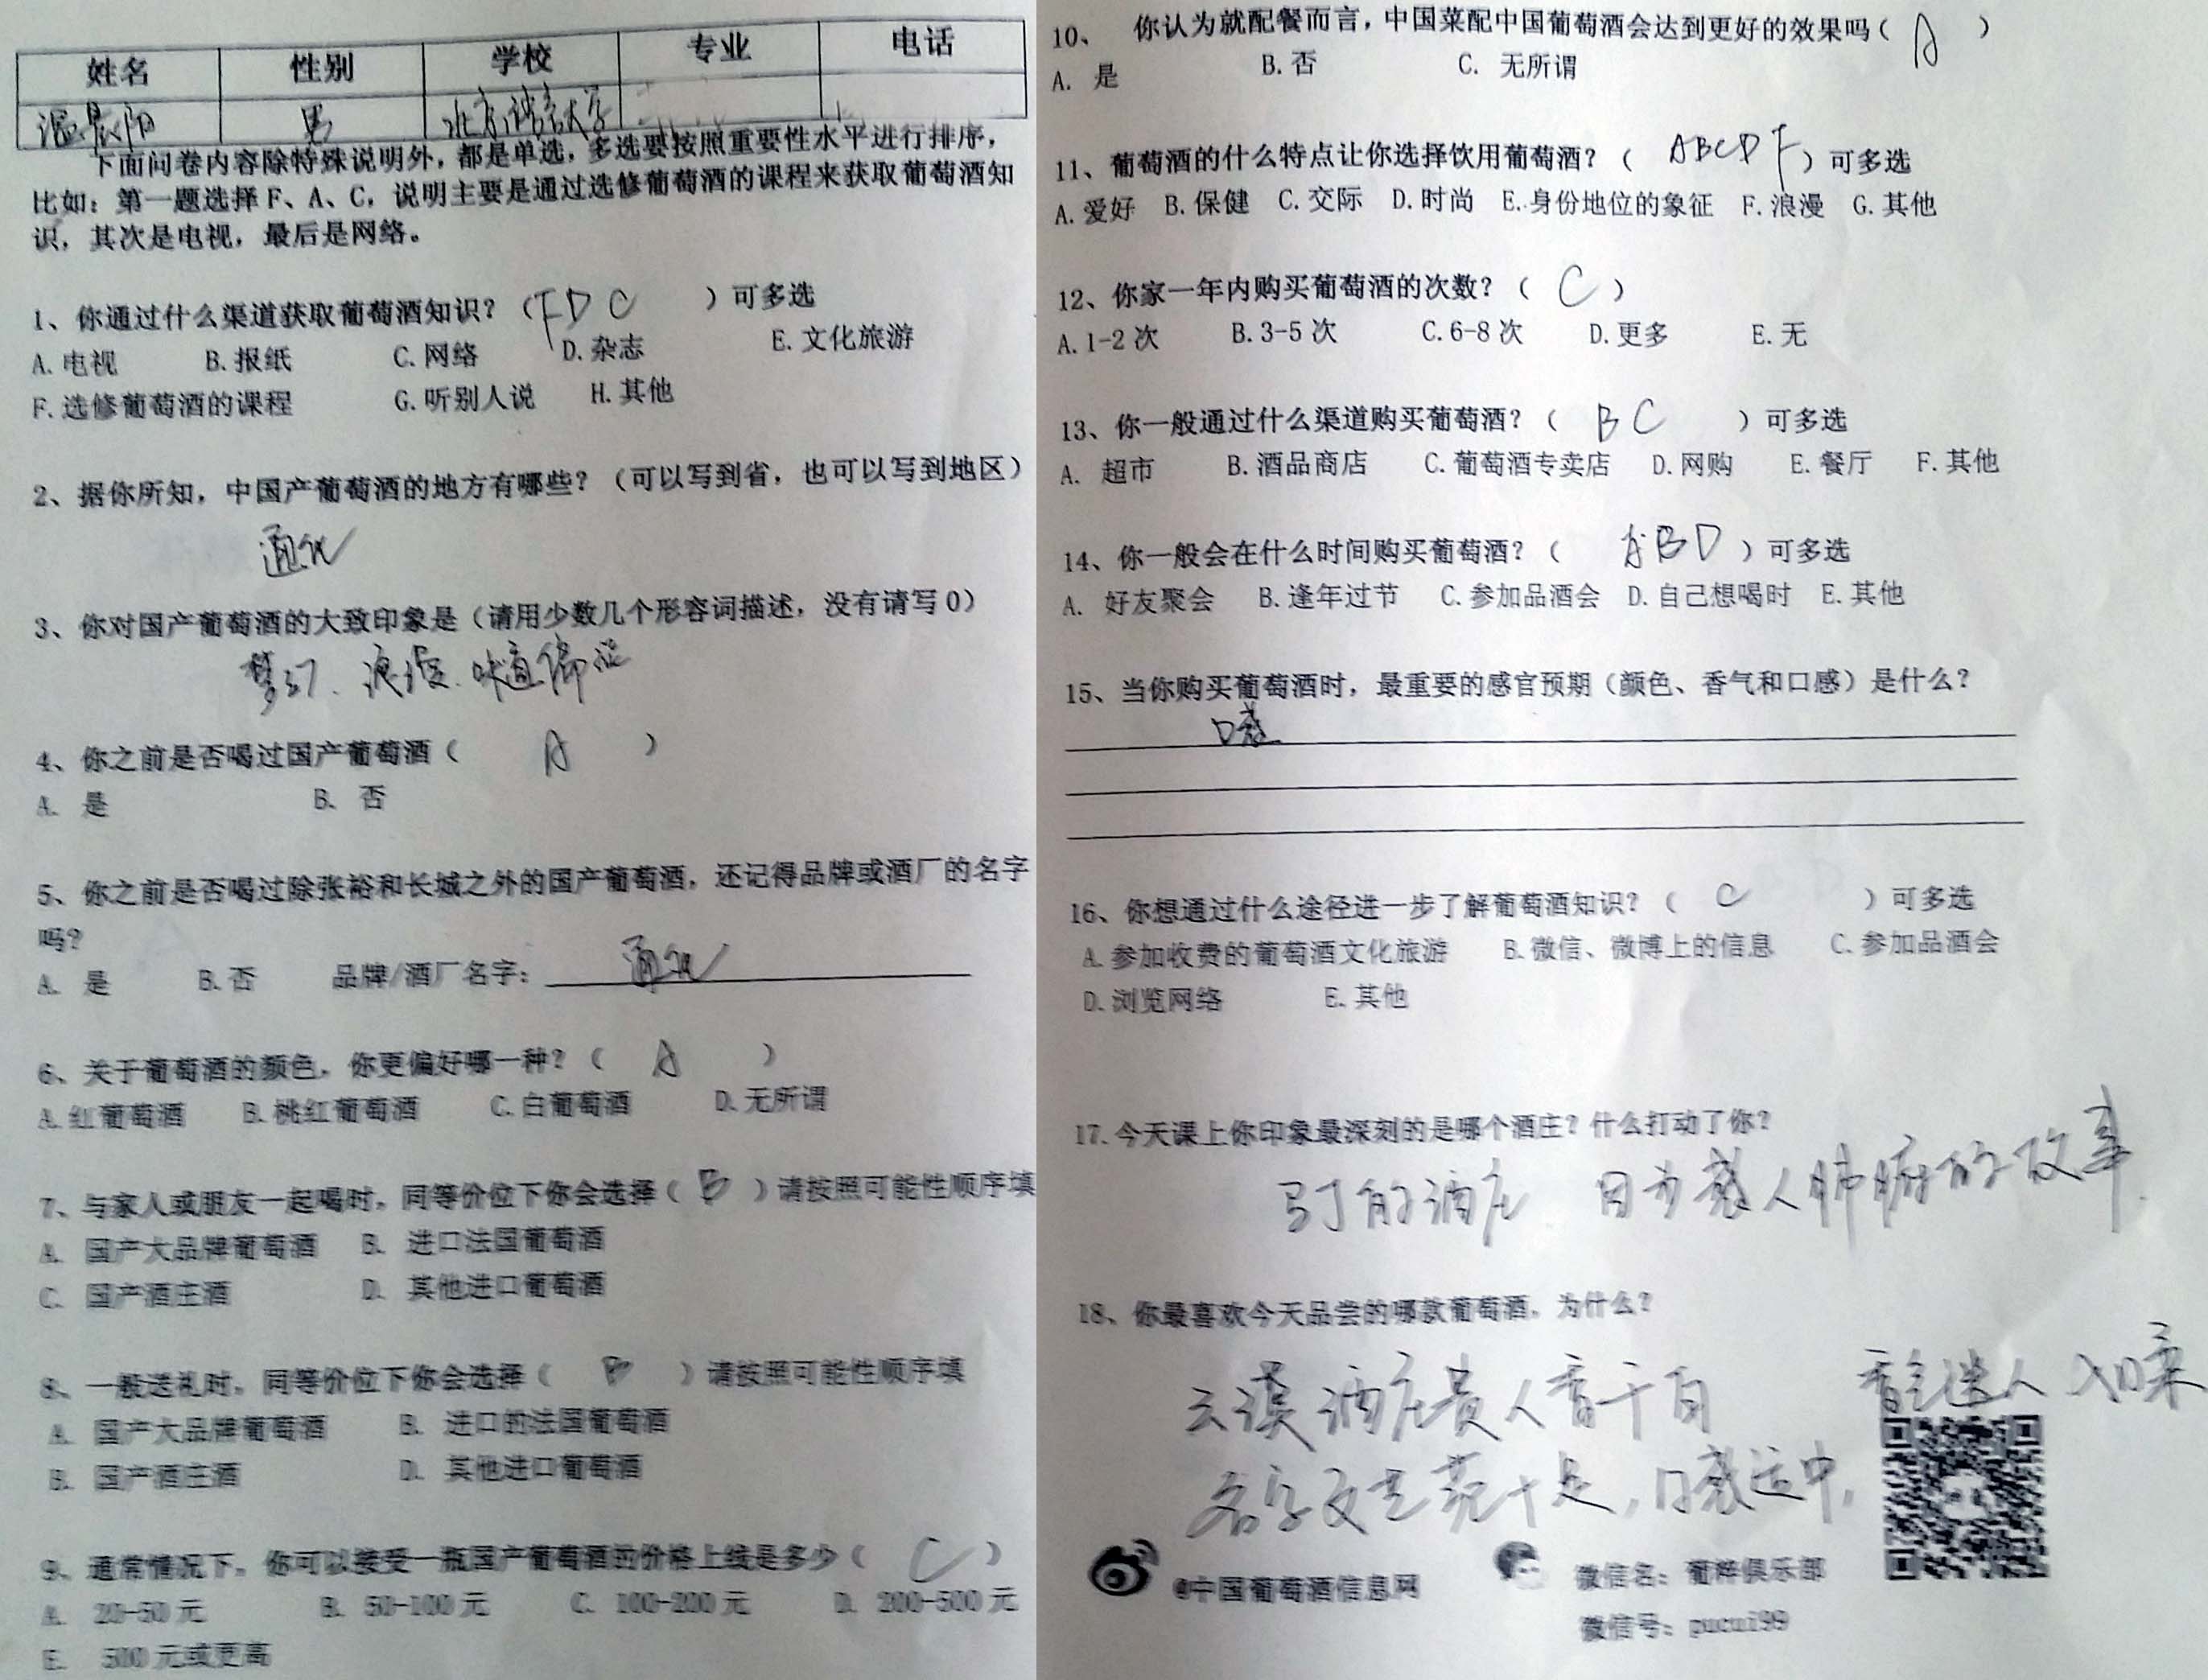 姓名 性别 学校 专业 电话
温晨阳 男 北京语言大学
下面问卷内容除特殊说明外，都是单选，多选要按照重要性水平进行排序，
比如：第一题选择 F、A、C，说明主要是通过选修葡萄酒的课程来获取葡萄酒知
识，其次是电视，最后是网络。
1、你通过什么渠道获取葡萄酒知识？（FDC）可多选
A.电视 B.报纸 C.网络 D.杂志 E.文化旅游
F.选修葡萄酒的课程 G.听别人说 H.其他
2、据你所知，中国产葡萄酒的地方有哪些？（可以写到省，也可以写到地区）
通化
3、你对国产葡萄酒的大致印象是（请用少数几个形容词描述，没有请写 0）
梦幻、浪漫、味道偏涩
4、你之前是否喝过国产葡萄酒（A）
A. 是 B. 否
5、你之前是否喝过除张裕和长城之外的国产葡萄酒，还记得品牌或酒厂的名字
吗？
A. 是 B.否 品牌/酒厂名字：通化
6、关于葡萄酒的颜色，你更偏好哪一种？（A）
A.红葡萄酒 B.桃红葡萄酒 C.白葡萄酒 D.无所谓
7、与家人或朋友一起喝时，同等价位下你会选择（B）请按照可能性顺序填
A. 国产大品牌葡萄酒 B. 进口法国葡萄酒
C. 国产酒庄酒 D. 其他进口葡萄酒
8、一般送礼时，同等价位下你会选择（B）请按照可能性顺序填
A. 国产大品牌葡萄酒 B. 进口的法国葡萄酒
B. 国产酒庄酒 D. 其他进口葡萄酒
9、通常情况下，你可以接受一瓶国产葡萄酒的价格上线是多少（C）
A. 20-50 元 B. 50-100 元 C. 100-200 元 D. 200-500 元
E. 500 元或更高
10、 你认为就配餐而言，中国菜配中国葡萄酒会达到更好的效果吗（A）
A. 是 B.否 C. 无所谓
11、葡萄酒的什么特点让你选择饮用葡萄酒？（ABCDF）可多选
A.爱好 B.保健 C.交际 D.时尚 E.身份地位的象征 F.浪漫 G.其他
12、你家一年内购买葡萄酒的次数？（C）
A.1-2 次 B.3-5 次 C.6-8 次 D.更多 E.无
13、你一般通过什么渠道购买葡萄酒？（BC）可多选
A. 超市 B.酒品商店 C.葡萄酒专卖店 D.网购 E.餐厅 F.其他
14、你一般会在什么时间购买葡萄酒？（ABD）可多选
A. 好友聚会 B.逢年过节 C.参加品酒会 D.自己想喝时 E.其他
15、当你购买葡萄酒时，最重要的感官预期（颜色、香气和口感）是什么？
口感
16、你想通过什么途径进一步了解葡萄酒知识？（C）可多选
A.参加收费的葡萄酒文化旅游 B.微信、微博上的信息 C.参加品酒会
D.浏览网络 E.其他
17.今天课上你印象最深刻的是哪个酒庄？什么打动了你？
的酒庄 因为感人肺腑的故事.
18、你最喜欢今天品尝的哪款葡萄酒，为什么？
云漠酒庄贵人香干白 香气迷人 入口柔
名字文艺范十足，口感适中，
@中国葡萄酒信息网 微信名：葡粹俱乐部
微信号：pucui99